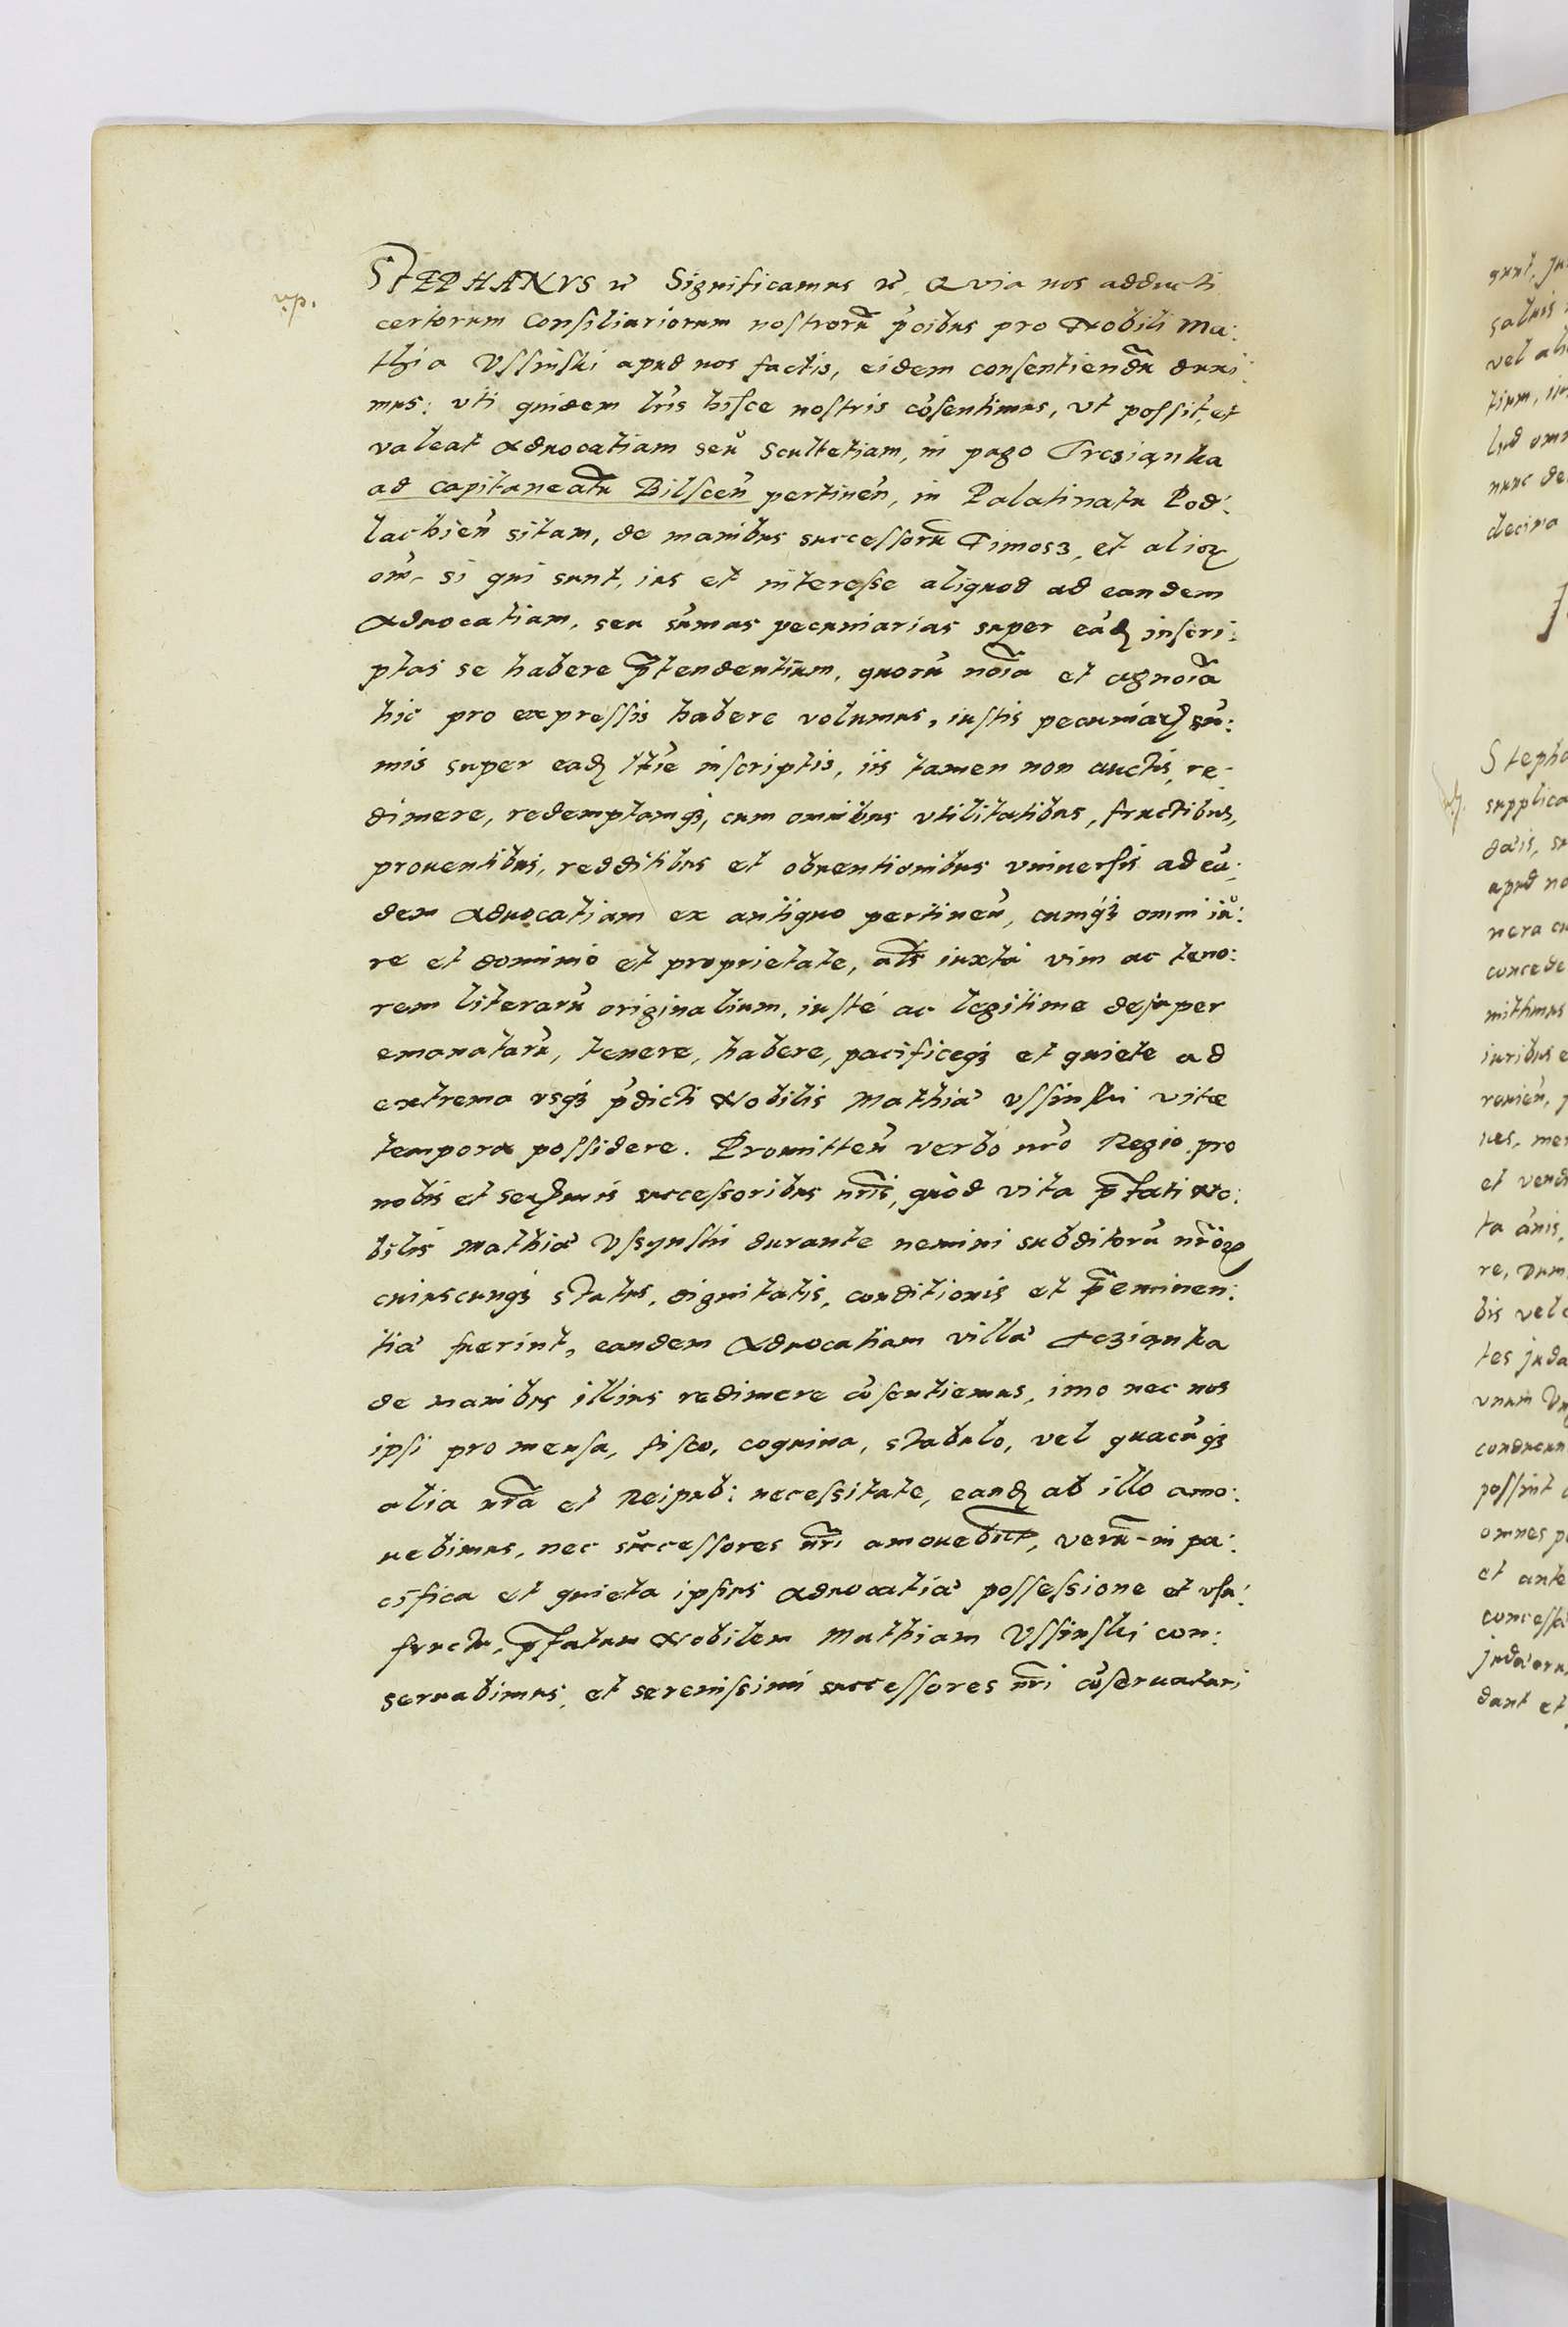 STEPHANVS etc Significamus etc. Quia nos adducti
vp.
certorum Consiliariorum nostrorũ p̃cibus pro Nobili Ma:
thia Vssinski apud nos factis, eidem consentiendũ duxi:
mus: vti quidem lr̃is hisce nostris cõsentimus, vt possit, et
valeat Aduocatiam seŭ Scultetiam, in pago
ad capitaneatũ Bilsceñ pertineñ, in Palatinatu Pod:
lachieñ sitam, de manibus successorũ Timosz, et alioꝝ
om̃. si qui sunt, ius et interesse aliquod ad eandem
Aduocatiam, seu sũmas pecuniarias super eãd inscri:
ptas se habere p̃tendentium, quorũ noĩa et cognoĩa
hic pro expressis habere volumus, iustis pecuniar sũ:
mis super ead lr̃ie inscriptis, iis tamen non auctis, re-
dimere, redemptamq3, cum omnibus vtilitatibus, fructibus,
prouentibus, redditibus et obuentionibus vniuersis ad eã:
dem Aduocatiam ex antiquo pertineñ, cumq3 omni iŭ:
re et dominio et proprietate, al̃s iuxta vim ac teno:
rem literarũ originalium, iuste ac legitime desuper
emanatarũ, tenere, habere, pacificeq3 et quiete ad
extrema vsq3 p̃dicti Nobilis Mathiæ Vssinski vitæ
tempora possidere. Promitteñ verbo nr̃o Regio pro
nobis et ser̃mis successoribus nr̃is, quod vita p̃fati No:
bilis Mathiæ Vssynski durante nemini subditorũ nr̃oꝝ
cuiuscunq3 status, dignitatis, conditionis et p̃eminen:
tiæ fuerint, eandem Aduocatiam villæ
de manibus illius redimere cõsentiemus, imo nec nos
ipsi pro mensa, fisco, coquina, stabulo, vel quacũq3
alia nr̃a et Reipub: necessitate, eand ab illo amo:
uebimus, nec successores nr̃i amouebũt, verũ in pa:
cifica et quieta ipsius Aduocatiæ possessione et vsu:
fructu, p̃fatum Nobilem Mathiam Vssinski con:
seruabimus, et serenissimi successores nr̃i cõseruaturi